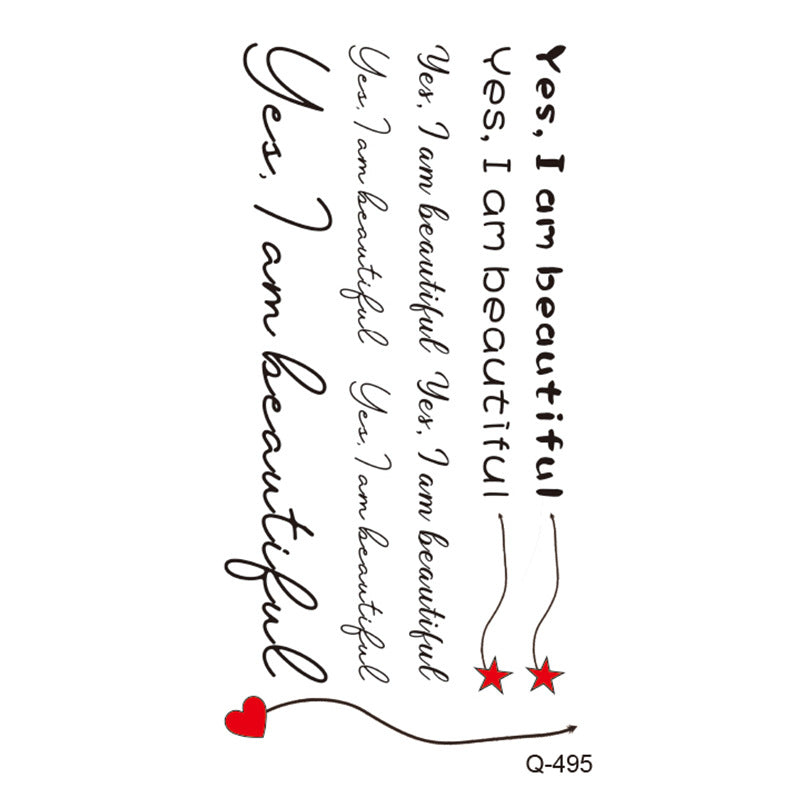 Yes, I am beautiful
Yes, I am beautiful
Yes, I am beautiful Yes, I am beautiful
Yes, I am beautiful Yes, I am beautiful
Yes, I am beautiful
Q-495